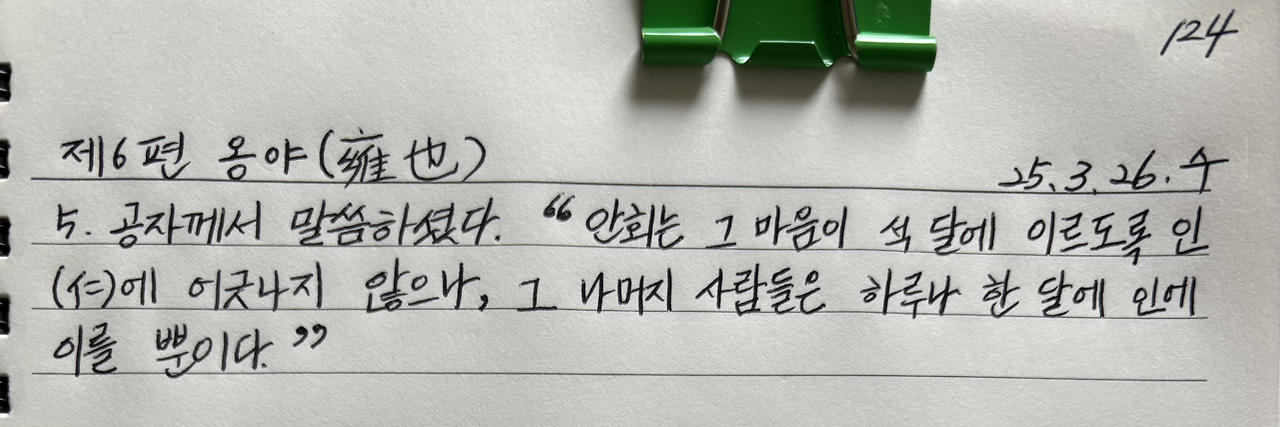 124
제6편 옹야(雍也)
25.3.26.수
5. 공자께서 말씀하셨다. “안회는 그 마음이 석 달에 이르도록 인
(仁)에 어긋나지 않으나, 그 나머지 사람들은 하루나 한 달에 인에
이를 뿐이다.”